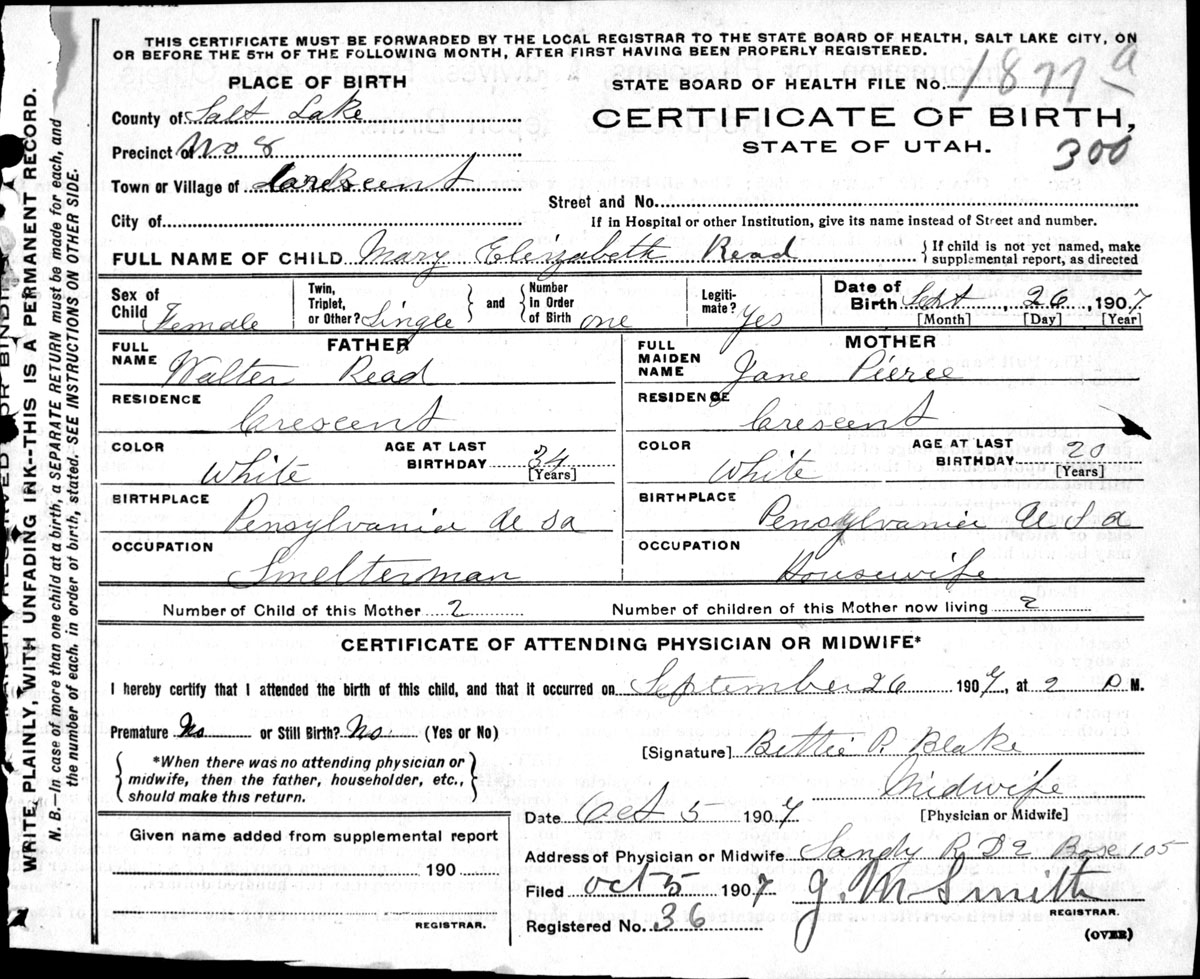 THIS CERTIFICATE MUST BE FORWARDED BY THE LOCAL REGISTRAR TO THE STATE BOARD OF HEALTH, SALT LAKE CITY, ON
OR BEFORE THE 5TH OF THE FOLLOWING MONTH, AFTER FIRST HAVING BEEN PROPERLY REGISTERED.
PLACE OF BIRTH
STATE BOARD OF HEALTH FILE No. 1877 a
County of Salt Lake
CERTIFICATE OF BIRTH,
STATE OF UTAH.
300
Precinct of No 8
Town or Village of Crescent
Street and No.
City of
If in Hospital or other Institution, give its name instead of Street and number.
FULL NAME OF CHILD Mary Elizabeth Read { If child is not yet named, make supplemental report, as directed
Sex of Child Female
Twin, Triplet, or Other? Single } and { Number in Order of Birth one
Legiti-mate? Yes
Date of Birth Sept, 26, 1907
[Month] [Day] [Year]
FATHER
FULL NAME Walter Read
MOTHER
FULL MAIDEN NAME Jane Pierce
RESIDENCE Crescent
RESIDENCE Crescent
COLOR White AGE AT LAST BIRTHDAY 34 [Years]
COLOR White AGE AT LAST BIRTHDAY 20 [Years]
BIRTHPLACE Pensylvania U S a
BIRTHPLACE Pensylvania U S a
OCCUPATION Smelterman
OCCUPATION Housewife
Number of Child of this Mother 2 Number of children of this Mother now living 2
CERTIFICATE OF ATTENDING PHYSICIAN OR MIDWIFE*
I hereby certify that I attended the birth of this child, and that it occurred on September 26 1907, at 2 P M.
Premature No or Still Birth? No. (Yes or No)
[Signature] Bettie P. Blake
{ *When there was no attending physician or
midwife, then the father, householder, etc.,
should make this return. }
Midwife
[Physician or Midwife]
Date Oct 5 1907
Given name added from supplemental report
190
REGISTRAR.
Address of Physician or Midwife Sandy R D 2 Box 105
Filed Oct 5 1907 J. M Smith
REGISTRAR.
Registered No. 36
(OVER)
WRITE PLAINLY, WITH UNFADING INK--THIS IS A PERMANENT RECORD.
N. B.—In case of more than one child at a birth, a SEPARATE RETURN must be made for each, and
the number of each, in order of birth, stated. SEE INSTRUCTIONS ON OTHER SIDE.